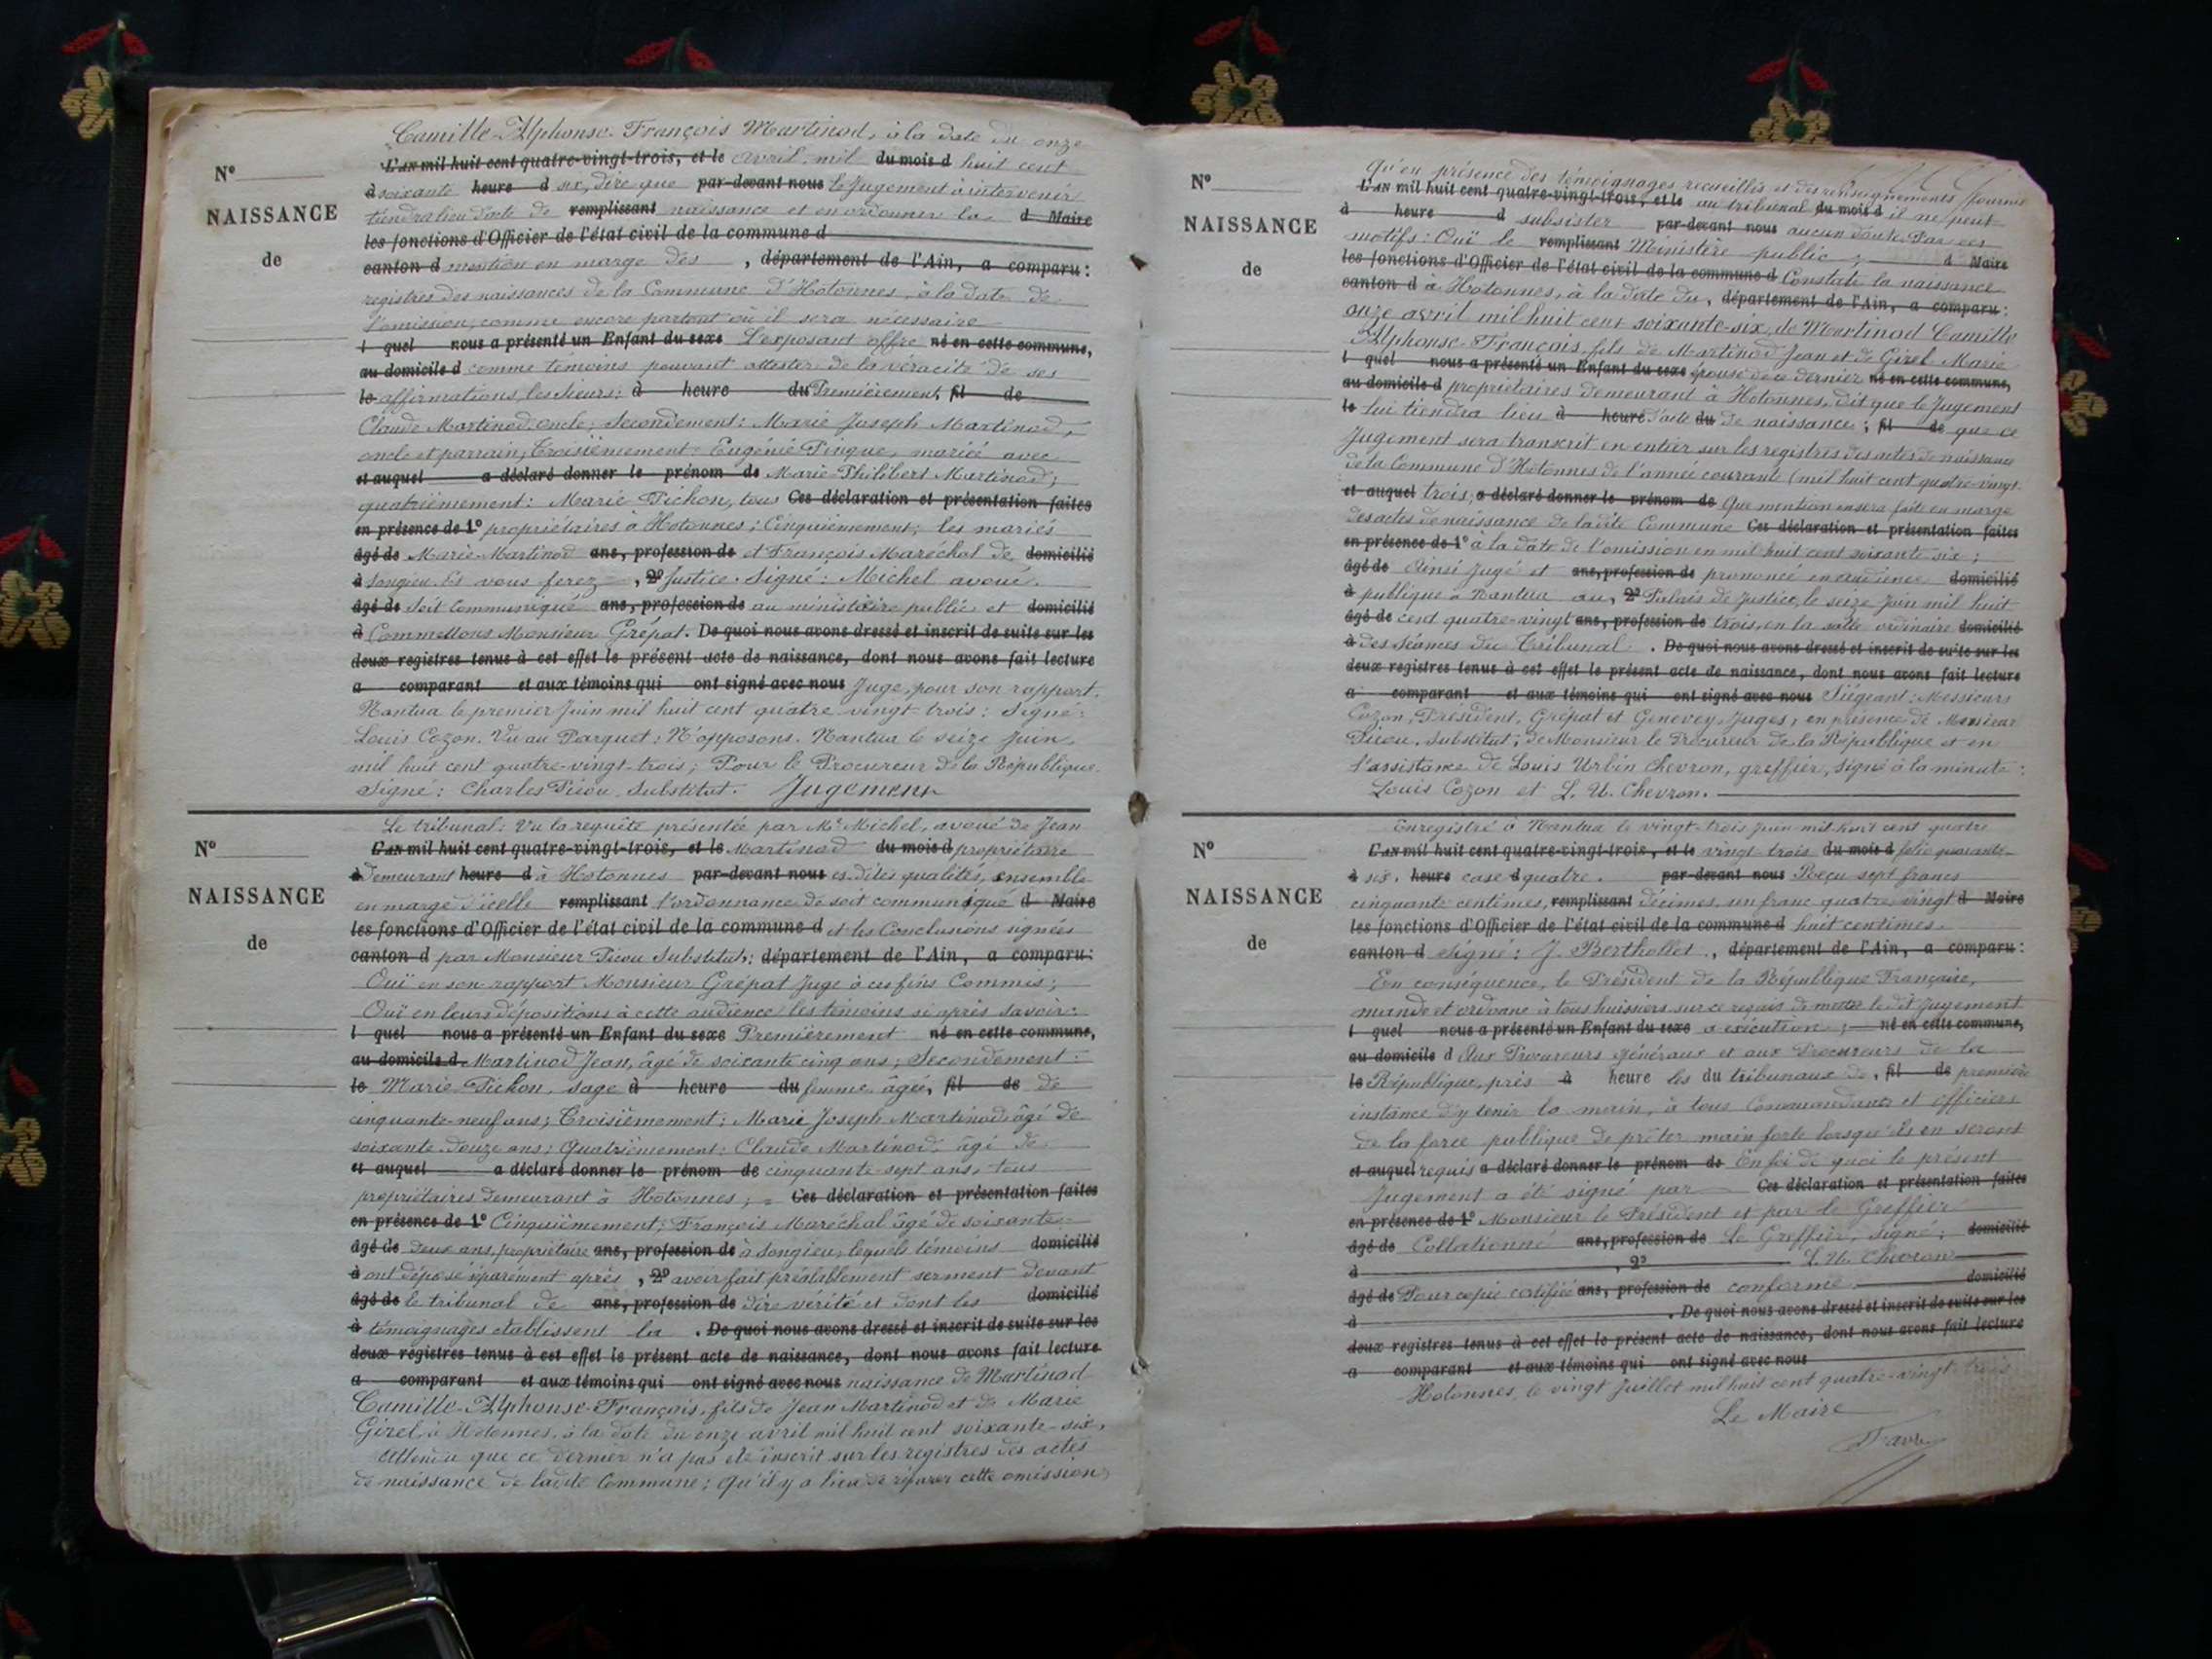 Camille-Alphonse-François Martinod, à la date du onze
N° L'AN mil huit cent quatre-vingt-trois, et le avril mil du mois d huit cent
à soixante heure d six, dire que par-devant nous le Jugement à intervenir
NAISSANCE tiendra lieu d'acte de remplissant naissance et en ordonner la d Maire
les fonctions d'Officier de l'état civil de la commune d
de canton d mention en marge des , département de l'Ain, a comparu :
registres des naissances de la Commune d'Hotonnes, à la date de
l'omission, comme encore partout où il sera nécessaire
l quel nous a présenté un Enfant du sexe L'exposant offre né en cette commune,
au domicile d comme témoins pouvant attester de la véracité de ses
le affirmations, les sieurs : à heure du Premièrement, fil de
Claude Martinod, oncle ; Secondement : Marie Joseph Martinod,
oncle et parrain, Troisièmement : Eugénie Pingue, mariée avec
et auquel a déclaré donner le prénom de Marie-Philibert Martinod ;
quatrièmement : Marie Pichon, tous Ces déclaration et présentation faites
en présence de 1° propriétaires à Hotonnes ; Cinquièmement, les mariés
âgé de Marie-Martinod ans, profession de et François Maréchal de domicilié
à Songieu. Et vous ferez , 2° Justice. Signé : Michel avoué.
âgé de Soit Communiqué ans, profession de au ministère public et domicilié
à Commettons Monsieur Grépat. De quoi nous avons dressé et inscrit de suite sur les
deux registres tenus à cet effet le présent acte de naissance, dont nous avons fait lecture
a comparant et aux témoins qui ont signé avec nous Juge, pour son rapport.
Nantua le premier Juin mil huit cent quatre vingt trois : Signé :
Louis Cozon. Vu au Parquet : N'opposons. Nantua le seize Juin,
mil huit cent quatre-vingt-trois ; Pour le Procureur de la République
Signé : Charles Picou, Substitut. Jugement
Le tribunal : Vu la requête présentée par Me Michel, avoué de Jean
N° L'AN mil huit cent quatre-vingt-trois, et le Martinod du mois d propriétaire
à Demeurant heure d à Hotonnes par-devant nous es-dites qualités, ensemble
NAISSANCE en marge d'icelle remplissant l'ordonnance de soit communiqué d Maire
les fonctions d'Officier de l'état civil de la commune d et les Conclusions signées
de canton d par Monsieur Picou Substitut ; département de l'Ain, a comparu :
Ouï en son rapport Monsieur Grépat Juge à ces fins Commis ;
Ouï en leurs dépositions à cette audience les témoins si après savoir :
l quel nous a présenté un Enfant du sexe Premièrement né en cette commune,
au domicile d Martinod Jean, âgé de soixante cinq ans ; Secondement :
le Marie Pichon, sage à heure du femme, âgée, fil de de
cinquante-neuf ans ; Troisièmement : Marie Joseph Martinod âgé de
soixante-douze ans ; Quatrièmement : Claude Martinod, âgé de
et auquel a déclaré donner le prénom de cinquante-sept ans, tous
propriétaires demeurant à Hotonnes ; Ces déclaration et présentation faites
en présence de 1° Cinquièmement : François Maréchal âgé de soixante-
âgé de deux ans, propriétaire ans, profession de à Songieu, lequels témoins domicilié
à ont déposé séparément après , 2° avoir fait préalablement serment devant
âgé de le tribunal de ans, profession de dire vérité et dont les domicilié
à témoignages établissent la . De quoi nous avons dressé et inscrit de suite sur les
deux registres tenus à cet effet le présent acte de naissance, dont nous avons fait lecture
a comparant et aux témoins qui ont signé avec nous naissance de Martinod
Camille-Alphonse-François, fils de Jean Martinod et de Marie
Girel, à Hotonnes, à la date du onze avril mil huit cent soixante-six,
Attendu que ce dernier n'a pas été inscrit sur les registres des actes
de naissance de ladite Commune ; Qu'il y a lieu de réparer cette omission
Qu'en présence des témoignages recueillis et des renseignements fournis
N° L'AN mil huit cent quatre-vingt-trois, et le au tribunal du mois d il ne peut
à heure d subsister par-devant nous aucun doute. Par ces
NAISSANCE motifs : Ouï le remplissant Ministère public ; d Maire
les fonctions d'Officier de l'état civil de la commune d Constate la naissance
de canton d à Hotonnes, à la date du , département de l'Ain, a comparu :
onze avril mil huit cent soixante-six, de Martinod Camille
Alphonse-François, fils de Martinod Jean et de Girel Marie
l quel nous a présenté un Enfant du sexe épouse de ce dernier né en cette commune,
au domicile d propriétaires demeurant à Hotonnes, dit que le Jugement
le lui tiendra lieu à heure d'acte du de naissance ; fil de que ce
Jugement sera transcrit en entier sur les registres des actes de naissance
de la Commune d'Hotonnes de l'année courante (mil huit cent quatre-vingt
et auquel trois ; a déclaré donner le prénom de Que mention en sera faite en marge
des actes de naissance de ladite Commune Ces déclaration et présentation faites
en présence de 1° à la date de l'omission en mil huit cent soixante six ;
âgé de Ainsi Jugé et ans, profession de prononcé en audience domicilié
à publique à Nantua au , 2° Palais de Justice, le seize Juin mil huit
âgé de cent quatre-vingt ans, profession de trois, en la salle ordinaire domicilié
à des séances du Tribunal . De quoi nous avons dressé et inscrit de suite sur les
deux registres tenus à cet effet le présent acte de naissance, dont nous avons fait lecture
a comparant et aux témoins qui ont signé avec nous Siégeant : Messieurs
Cozon, Président, Grépat et Genevey, Juges, en présence de Monsieur
Picou, Substitut, de Monsieur le Procureur de la République et en
l'assistance de Louis Urbin Chevron, greffier, Signé à la minute :
Louis Cozon et L. U. Chevron.
Enregistré à Nantua le vingt-trois Juin mil huit cent quatre
N° L'AN mil huit cent quatre-vingt-trois, et le vingt-trois du mois d folio quarante-
à six. heure case d quatre. par-devant nous Reçu sept francs
NAISSANCE cinquante centimes, remplissant décimes, un franc quatre vingt d Maire
les fonctions d'Officier de l'état civil de la commune d huit centimes.
de canton d Signé : J. Berthollet , département de l'Ain, a comparu :
En conséquence, le Président de la République Française,
mande et ordonne à tous huissiers sur ce requis de mettre le dit Jugement
l quel nous a présenté un Enfant du sexe a exécution ; né en cette commune,
au domicile d Aux Procureurs généraux et aux Procureurs de la
le République, près à heure les du tribunaux de , fil de première
instance d'y tenir la main, à tous Commandants et officiers
de la force publique de prêter main forte lorsqu'ils en seront
et auquel requis a déclaré donner le prénom de En foi de quoi le présent
Jugement a été signé par Ces déclaration et présentation faites
en présence de 1° Monsieur le Président et par le Greffier
âgé de Collationné ans, profession de Le Greffier, signé : domicilié
à , 2° L. U. Chevron
âgé de Pour copie certifiée ans, profession de conforme domicilié
à . De quoi nous avons dressé et inscrit de suite sur les
deux registres tenus à cet effet le présent acte de naissance, dont nous avons fait lecture
a comparant et aux témoins qui ont signé avec nous
Hotonnes, le vingt Juillet mil huit cent quatre-vingt trois
Le Maire